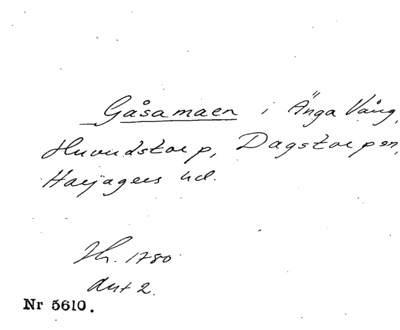 Gåsamaen i Änga Vång,
Huvudstorp, Dagstorpsn,
Harjagers hd.
Th. 1780
akt 2.
Nr 5610.